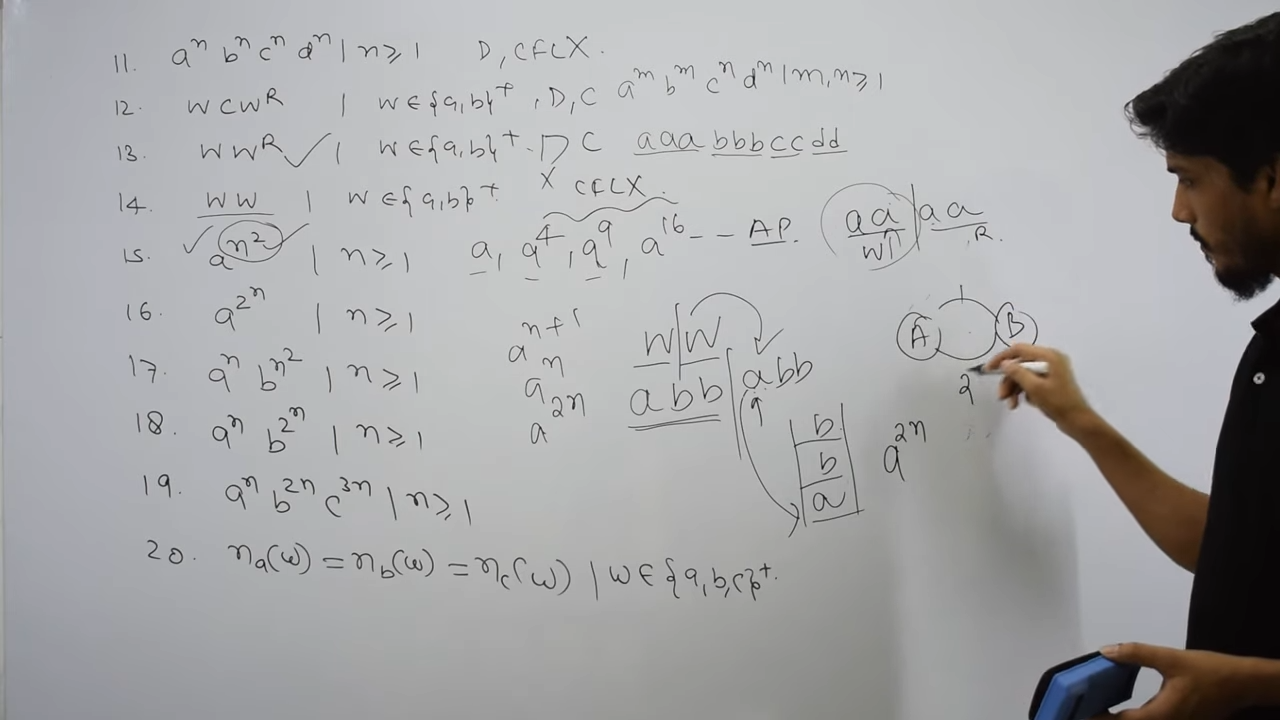 11. aⁿ bⁿ cⁿ dⁿ | n ≥ 1 D, CFL X.
12. WCWᴿ | W ∈ {a,b}⁺, D, C aᵐ bᵐ cⁿ dⁿ | m,n ≥ 1
13. WWᴿ ✓ | W ∈ {a,b}⁺. D C aaa bbb cc dd
X
14. WW | W ∈ {a,b}⁺ CFL X.
15. ✓ a^(n²) ✓ | n ≥ 1 a, a⁴, a⁹, a¹⁶ - - AP.
aa | aa
W R.
16. a^(2ⁿ) | n ≥ 1
17. aⁿ b^(n²) | n ≥ 1
18. aⁿ b^(2ⁿ) | n ≥ 1
19. aⁿ b²ⁿ c³ⁿ | n ≥ 1
20. nₐ(w) = n_b(w) = n_c(w) | W ∈ {a,b,c}⁺.
aⁿ⁺¹
aⁿ
a²ⁿ
W | W
abb | abb
b
b
a
a²ⁿ
A B
2